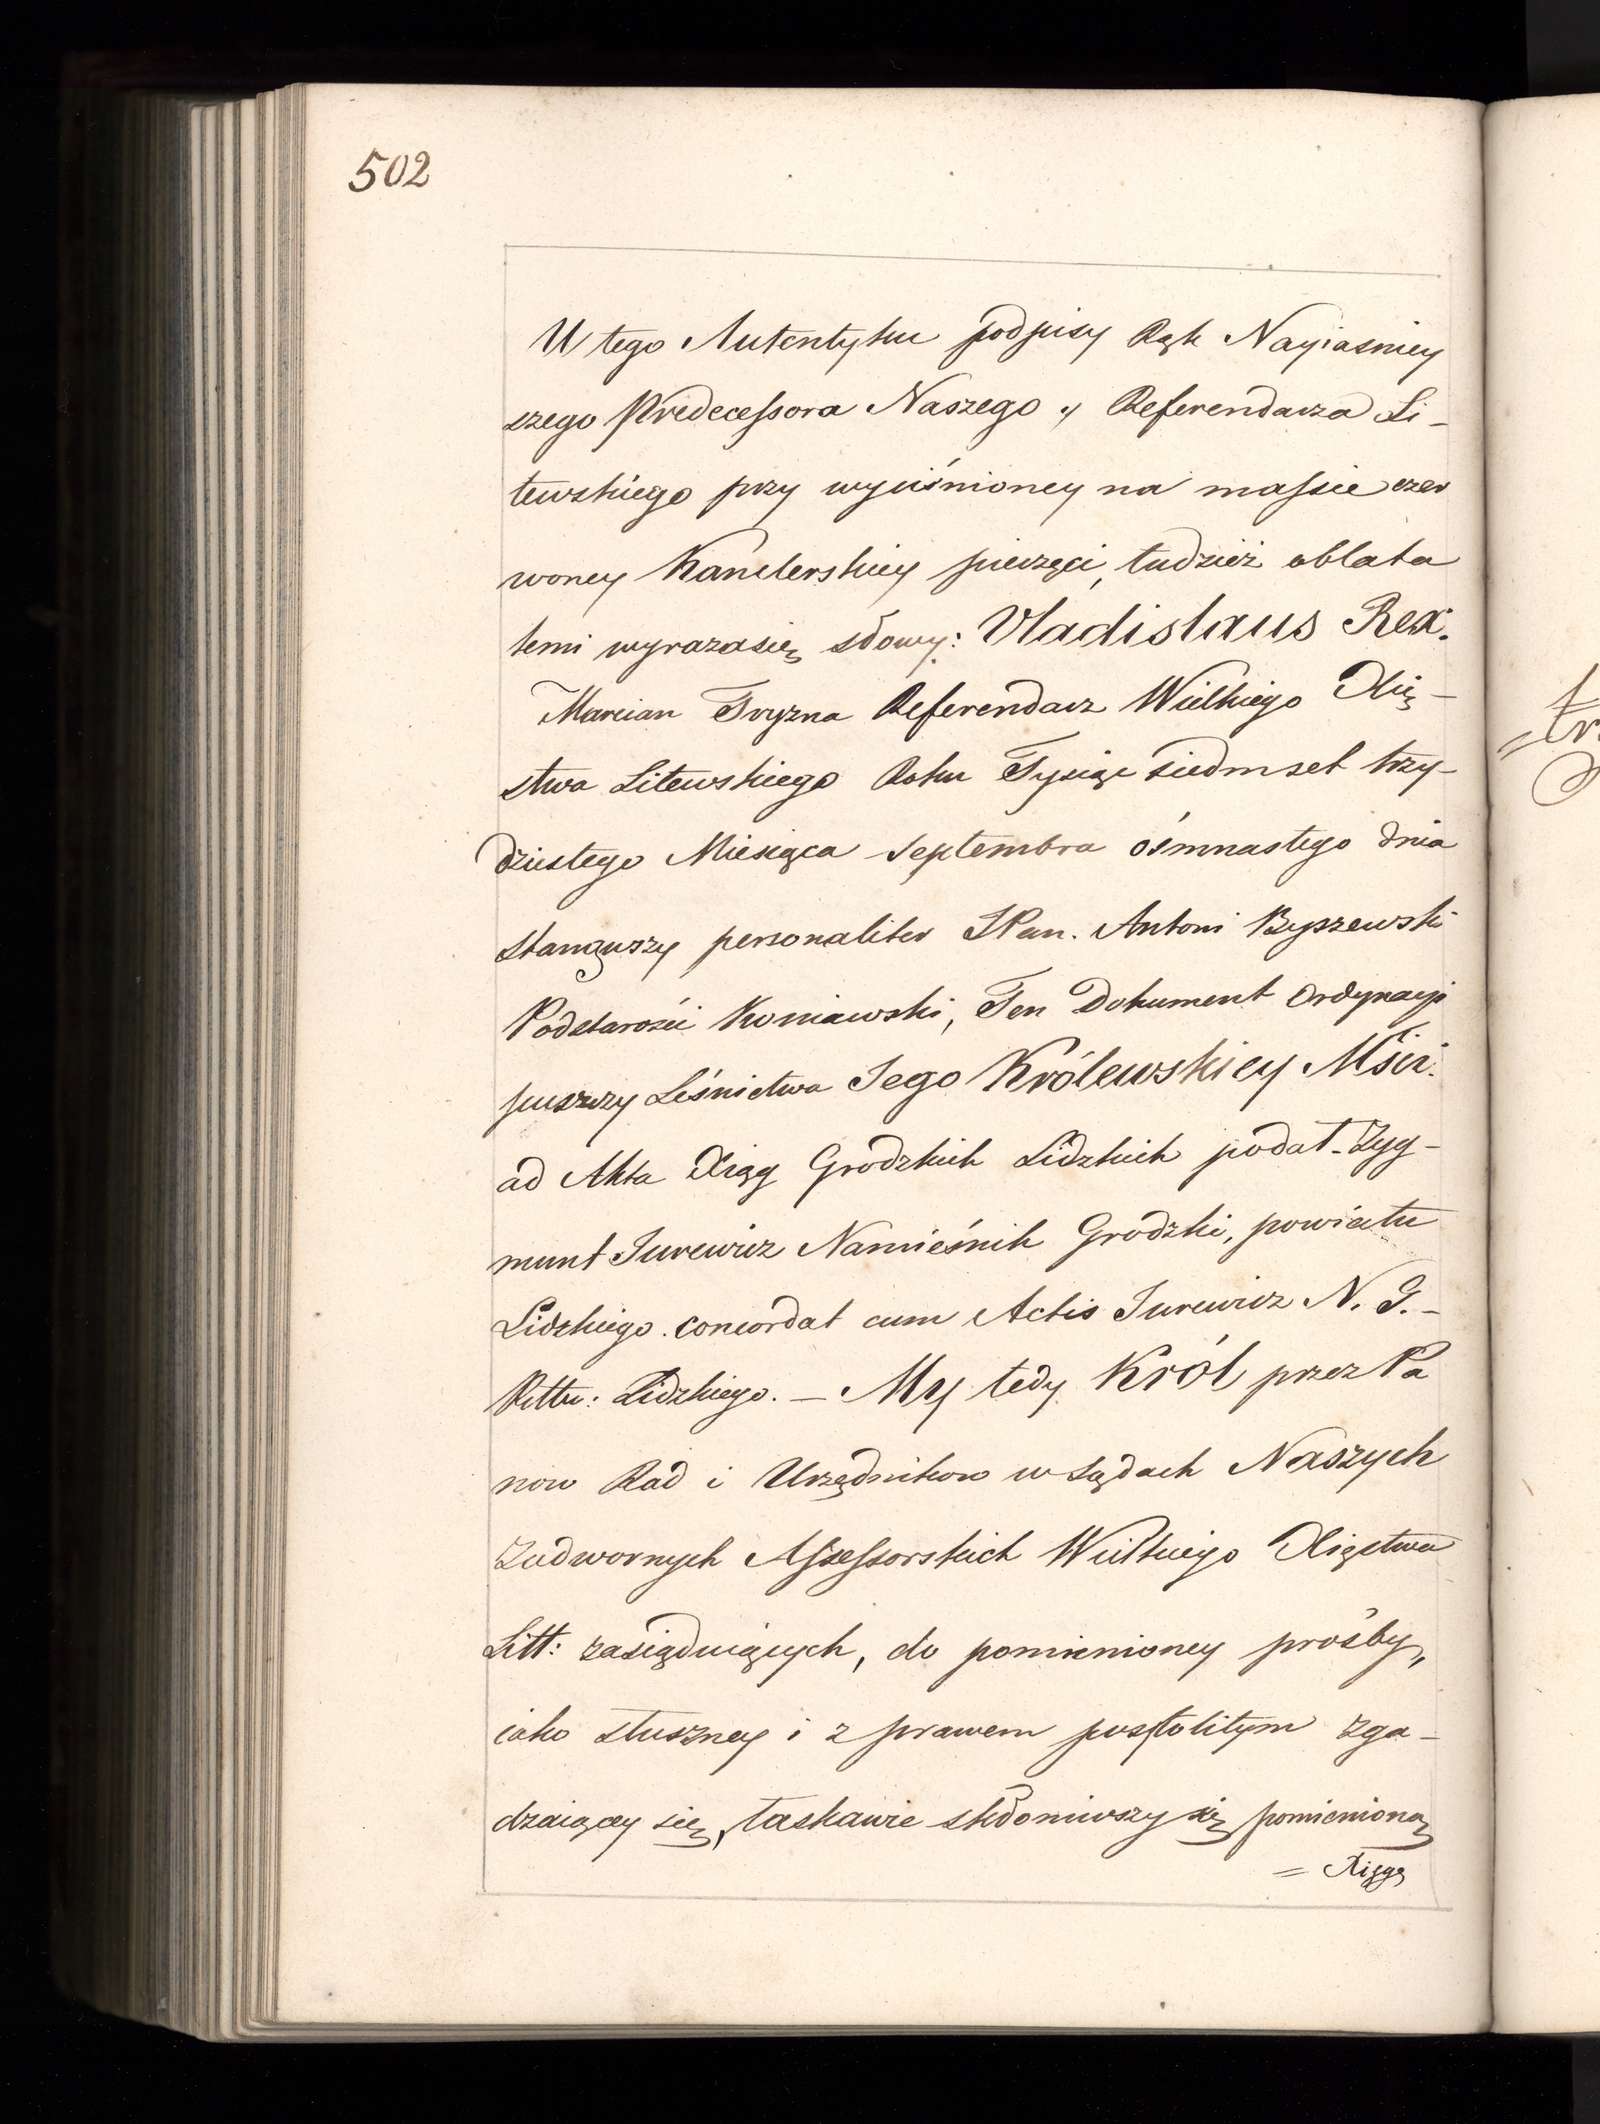 502
U tego Autentyku podpisy Rąk Nayiasniey
szego Predecessora Naszego y Referendarza Li-
tewskiego przy wyciśnioney na massie czer
woney Kanclerskiey pieczęci, tudzież oblata
temi wyrazasię słowy: Vladislaus Rex.
Marcian Tryzna Referendarz Wielkiego Xię-
stwa Litewskiego Roku Tysiąc siedmset trzy-
dziestego Miesiąca Septembra ośmnastego dnia
Stanąwszy personaliter JPan. Antoni Byszewski
Podstarości Koniawski, Ten Dokument Ordynacyi
puszczy Leśnictwa Jego Królewskiey Mści.
ad Akta Xiąg Grodzkich Lidzkich podał. Zyg-
munt Jurewicz Namieśnik Grodzki, powiatu
Lidzkiego. concordat cum Actis Jurewicz N. G. -
Pttu: Lidzkiego. - My tedy Król przez Pa
now Rad i Urzędnikow w Sądach Naszych
Zadwornych Assessorskich Wielkiego Xięstwa
Litt: zasiądaiących, do pomienioney prośby,,
iako słuszney i z prawem pospolitym zga-
dzaiącey się, łaskawie skłoniwszy się pomienioną
= Xięgę
= tr.